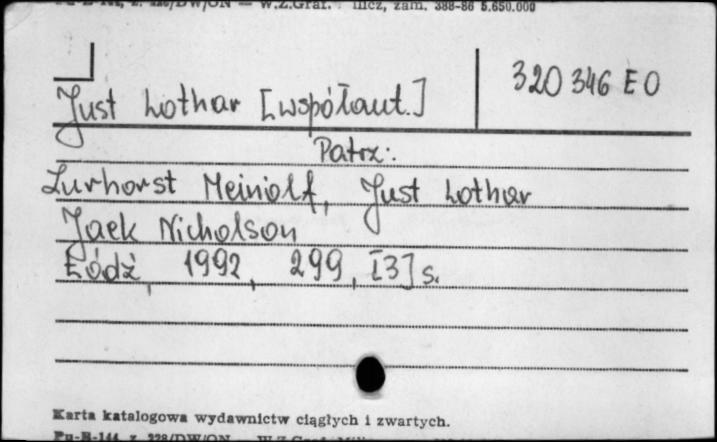 W.Z.Graf. zam. 388-86 5.650.000
320 346 EO
Just Lothar [współaut.]
Patrz:
Zurhorst Meinolf, Just Lothar
Jack Nicholson
Łódź, 1992, 299, [3] s.
Karta katalogowa wydawnictw ciągłych i zwartych.
Pu-B-144, z. 228/DW/ON — W.Z.Graf.